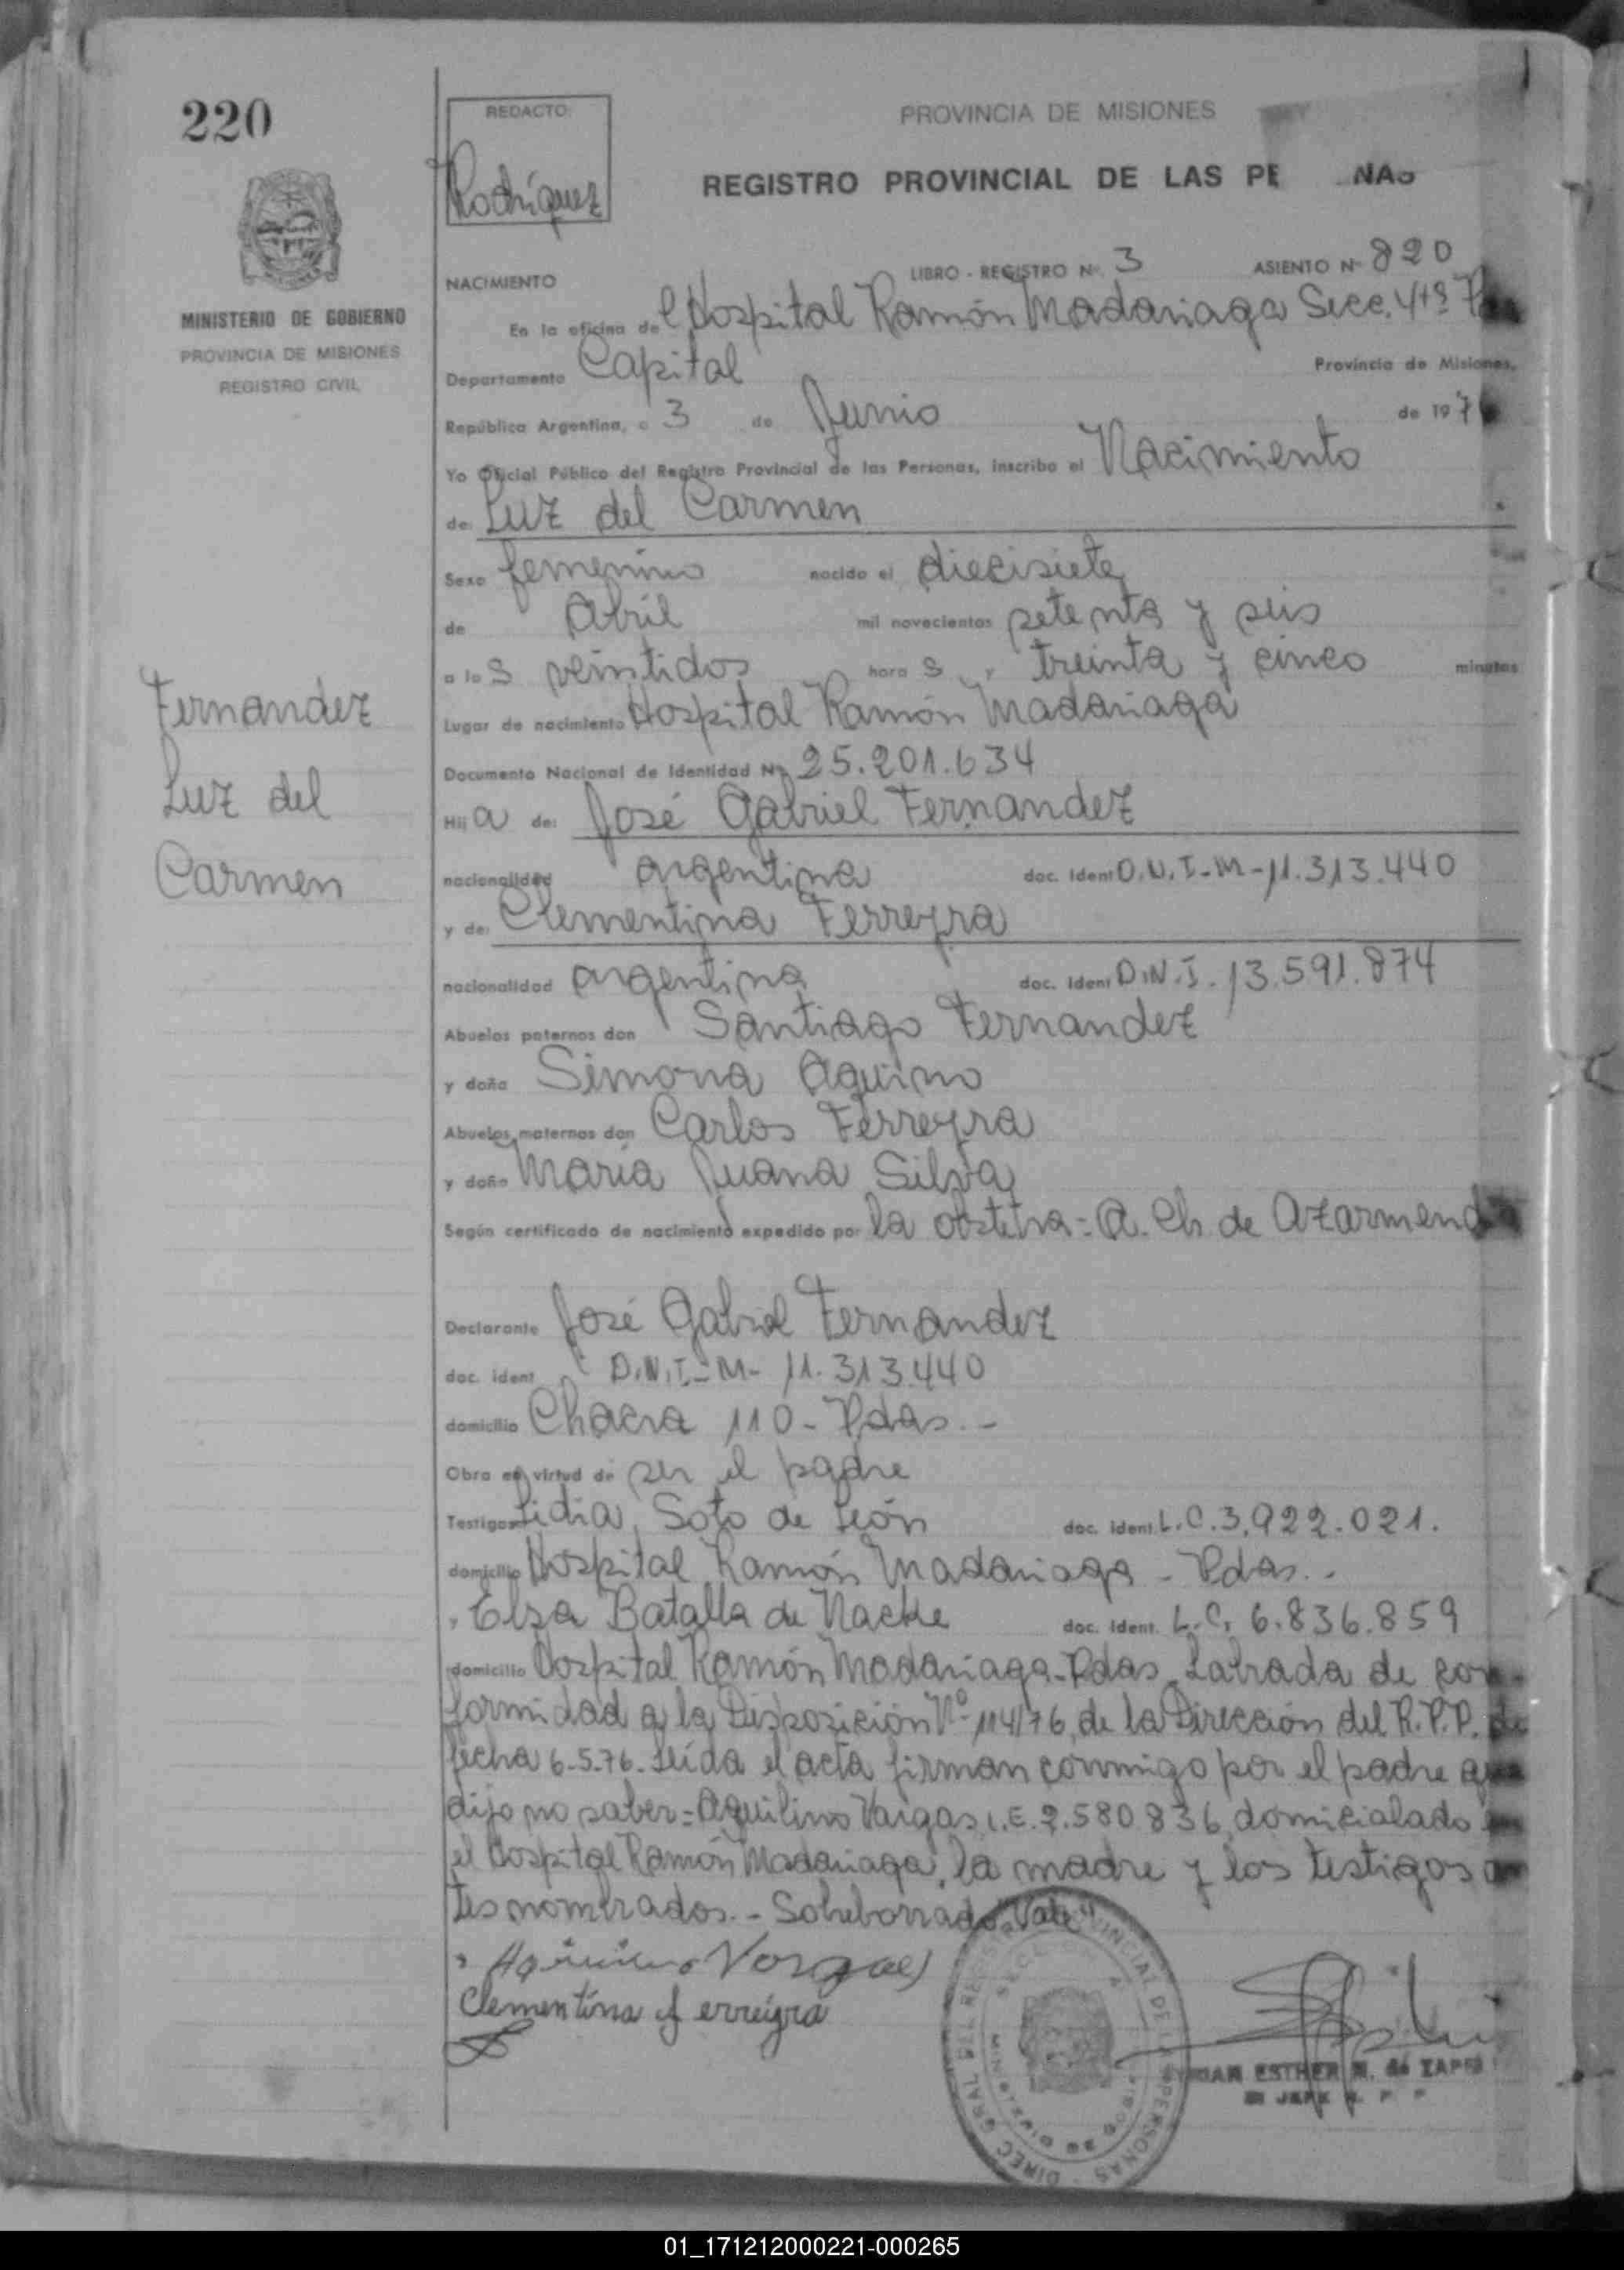 220
REDACTO:
Rodríguez
PROVINCIA DE MISIONES
REGISTRO PROVINCIAL DE LAS PE NAS
MINISTERIO DE GOBIERNO
PROVINCIA DE MISIONES
REGISTRO CIVIL
NACIMIENTO
LIBRO - REGISTRO Nº. 3 ASIENTO Nº 820
En la oficina del Hospital Ramón Madariaga Secc. 4ta
Departamento Capital Provincia de Misiones,
República Argentina, a 3 de Junio de 197
Yo Oficial Público del Registro Provincial de las Personas, inscribo el Nacimiento
de: Luz del Carmen
Sexo femenino nacido el diecisiete
de Abril mil novecientos setenta y seis
a las veintidos horas y treinta y cinco minutos
Fernandez
Luz del
Carmen
Lugar de nacimiento Hospital Ramón Madariaga
Documento Nacional de Identidad Nº 25.201.634
Hija de: José Gabriel Fernandez
nacionalidad argentina doc. Ident D.N.I-M-11.313.440
y de: Clementina Ferreyra
nacionalidad argentina doc. Ident D.N.I. 13.591.874
Abuelos paternos don Santiago Fernandez
y doña Simona Aquino
Abuelos maternos don Carlos Ferreyra
y doña María Juana Silva
Según certificado de nacimiento expedido por la obstetra=A. Ch. de Azarmend
Declarante José Gabriel Fernandez
doc. ident D.N.I.-M- 11.313.440
domicilio Chacra 110- Pdas.-
Obra en virtud de ser el padre
Testigos Lidia Soto de León doc. ident. L.C. 3.922.021.
domicilio Hospital Ramón Madariaga - Pdas.-
y Elsa Batalla de Nacke doc. ident. L.C. 6.836.859
domicilio Hospital Ramón Madariaga-Pdas. Labrada de con-
formidad a la Disposición Nº 114/76, de la Dirección del R.P.P. de
fecha 6-5-76. Leída el acta firman conmigo por el padre que
dijo no saber=Aquilino Vargas L.E. 2.580.836, domicialado en
el Hospital Ramón Madariaga, la madre y los testigos an
tes nombrados.- Sobreborrado "Vale"
Aquilino Vargas
Clementina ferreigra
ESTHER N. de ZAPE